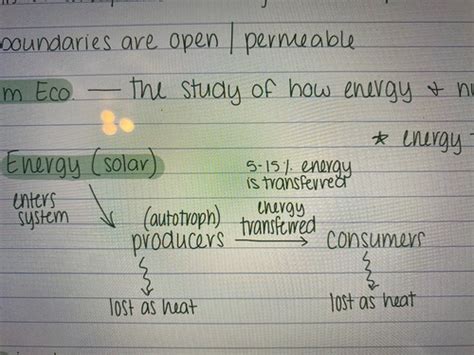 boundaries are open | permeable
m Eco. — the study of how energy &
* energy
Energy (solar)
5-15% energy
is transferred
enters
system
(autotroph)
producers
energy
transferred
consumers
lost as heat
lost as heat